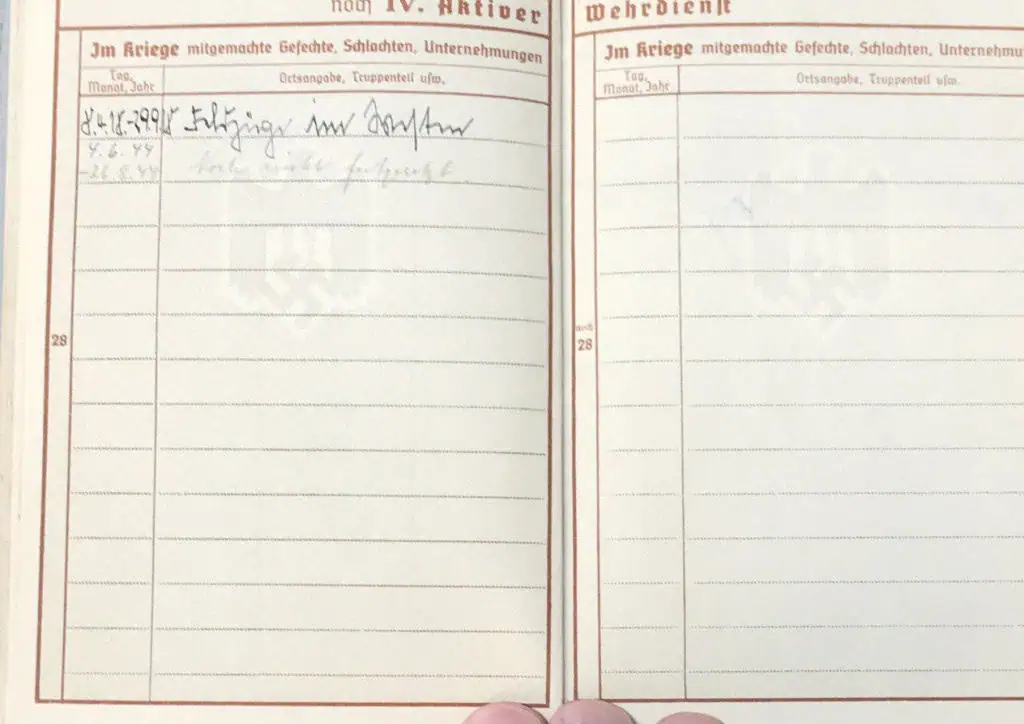 noch IV. Aktiver Wehrdienst
Im Kriege mitgemachte Gefechte, Schlachten, Unternehmungen
Tag, Monat, Jahr
Ortsangabe, Truppenteil usw.
Feldzüge im Westen
4.6.44
noch nicht festgesetzt
28
Im Kriege mitgemachte Gefechte, Schlachten, Unternehmu
Tag, Monat, Jahr
Ortsangabe, Truppenteil usw.
noch
28